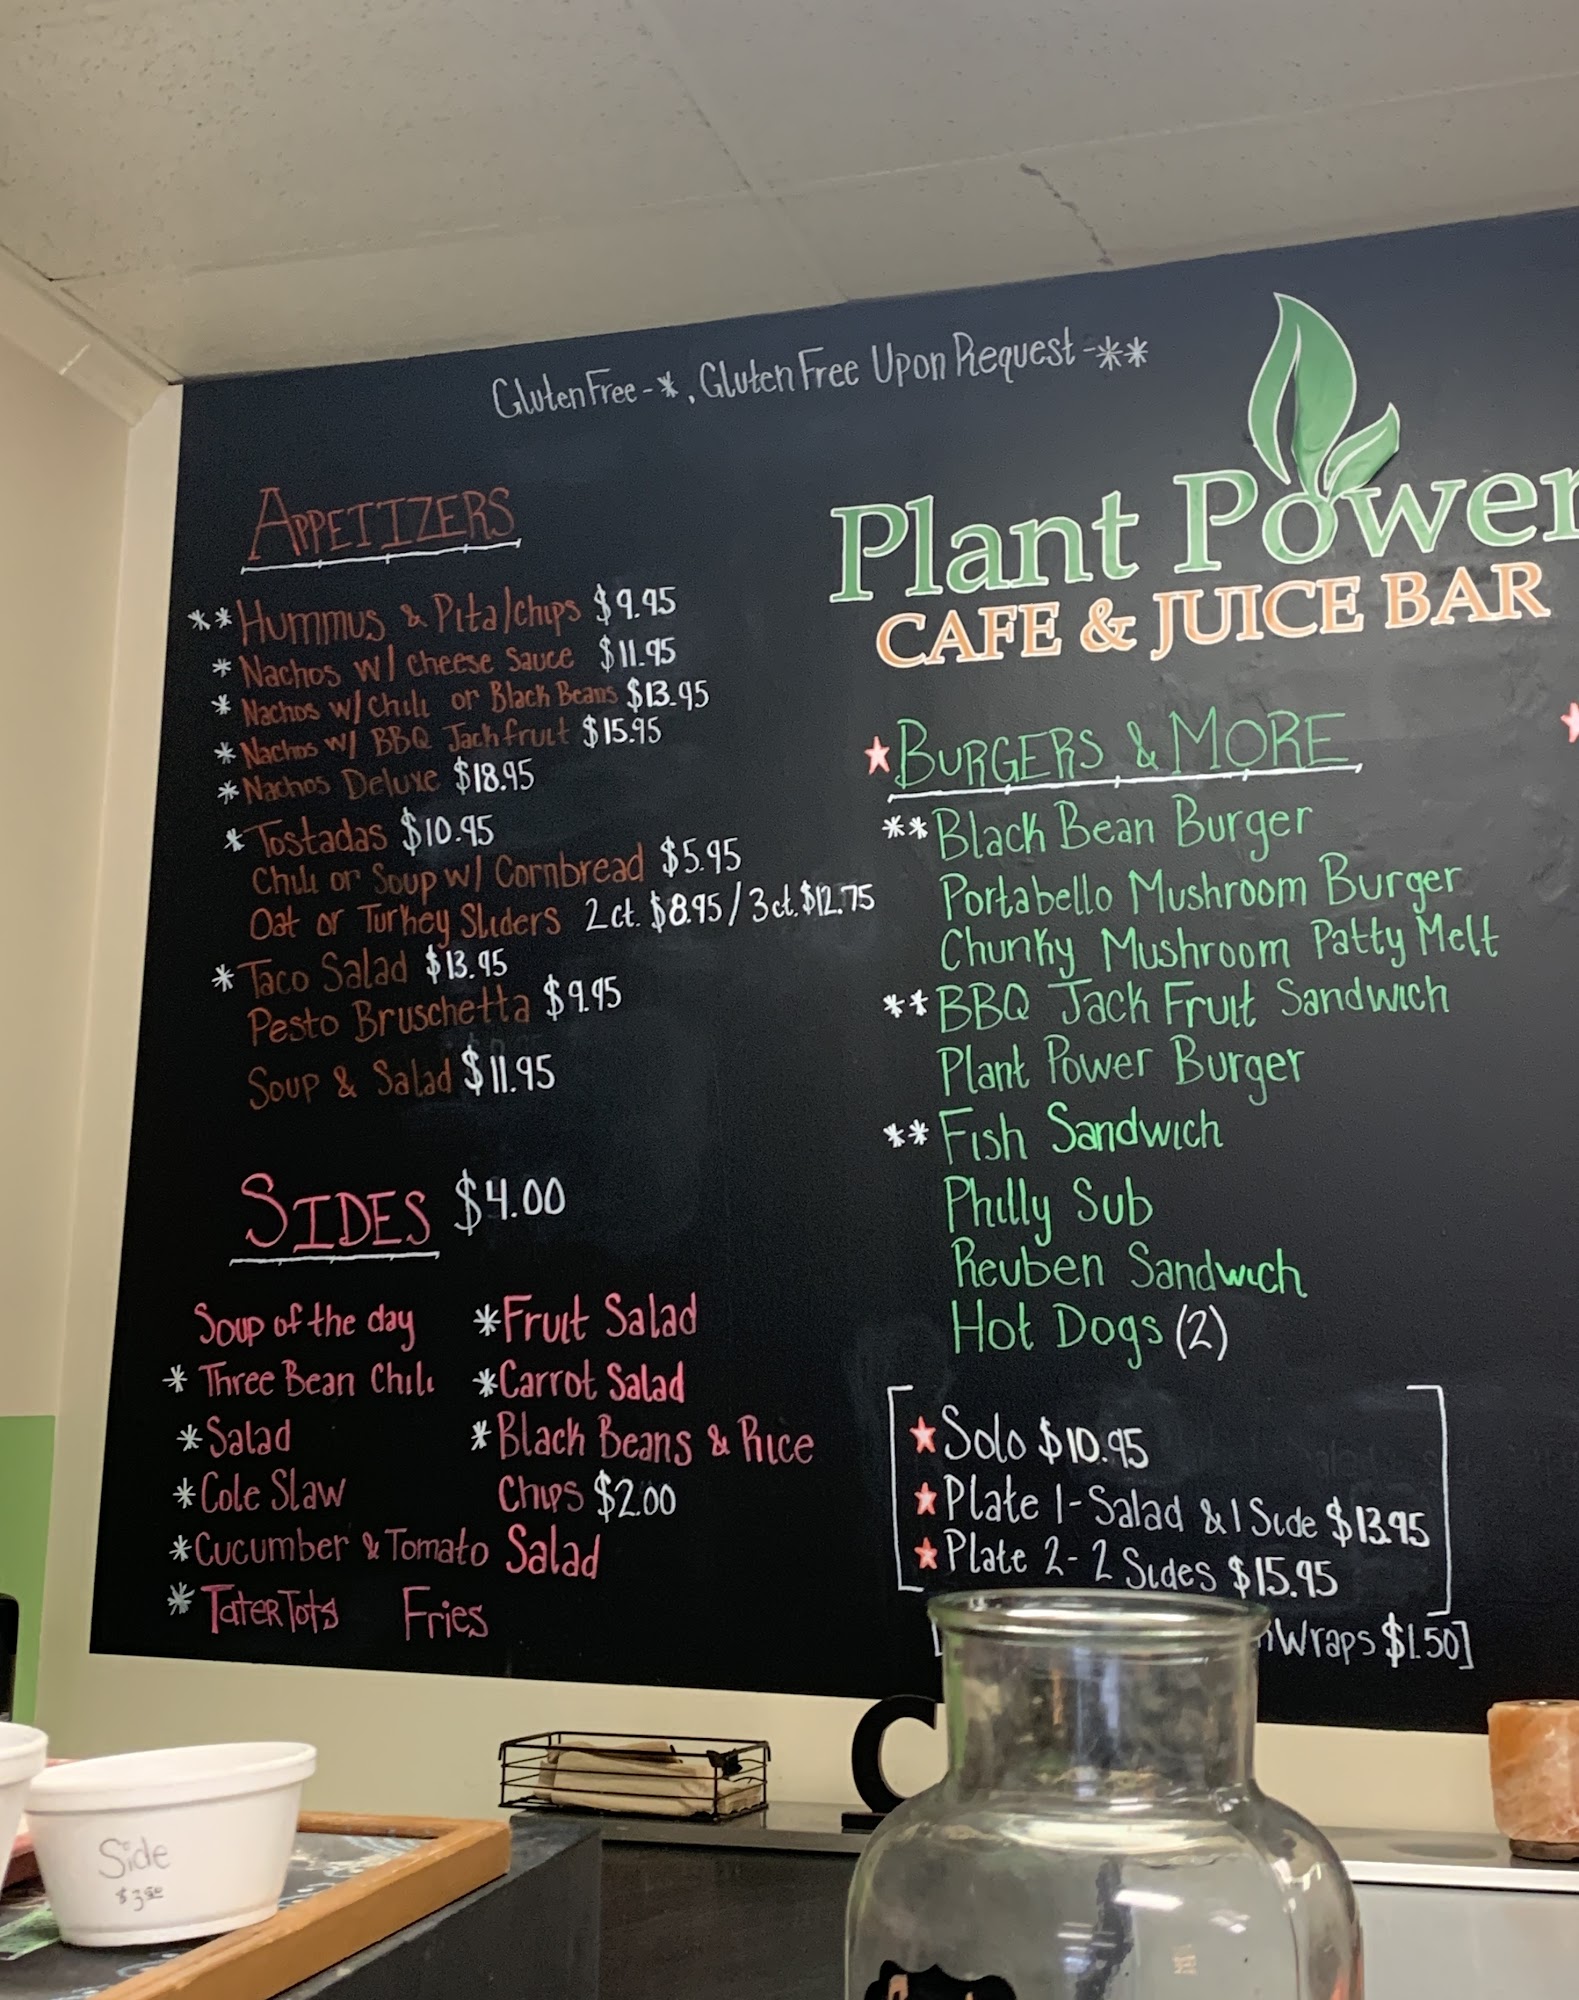 GlutenFree-*, GlutenFree Upon Request-**
APPETIZERS
**Hummus & Pita/chips $9.95
*Nachos w/ cheese Sauce $11.95
*Nachos w/Chili or Black Beans $13.95
*Nachos w/ BBQ Jackfruit $15.95
*Nachos Deluxe $18.95
*Tostadas $10.95
Chili or Soup w/ Cornbread $5.95
Oat or Turkey Sliders 2ct. $8.95/3ct.$12.75
*Taco Salad $13.95
Pesto Bruschetta $9.95
Soup & Salad $11.95
SIDES $4.00
Soup of the day
*Three Bean Chili
*Salad
*Cole Slaw
*Cucumber & Tomato Salad
*TaterTots Fries
*Fruit Salad
*Carrot Salad
*Black Beans & Rice
Chips $2.00
Plant Power
CAFE & JUICE BAR
★BURGERS & MORE
**Black Bean Burger
Portabello Mushroom Burger
Chunky Mushroom Patty Melt
**BBQ Jack Fruit Sandwich
Plant Power Burger
**Fish Sandwich
Philly Sub
Reuben Sandwich
Hot Dogs (2)
★Solo $10.95
★Plate 1-Salad & 1 Side $13.95
★Plate 2-2 Sides $15.95
Wraps $1.50]
C
Side
$3.00